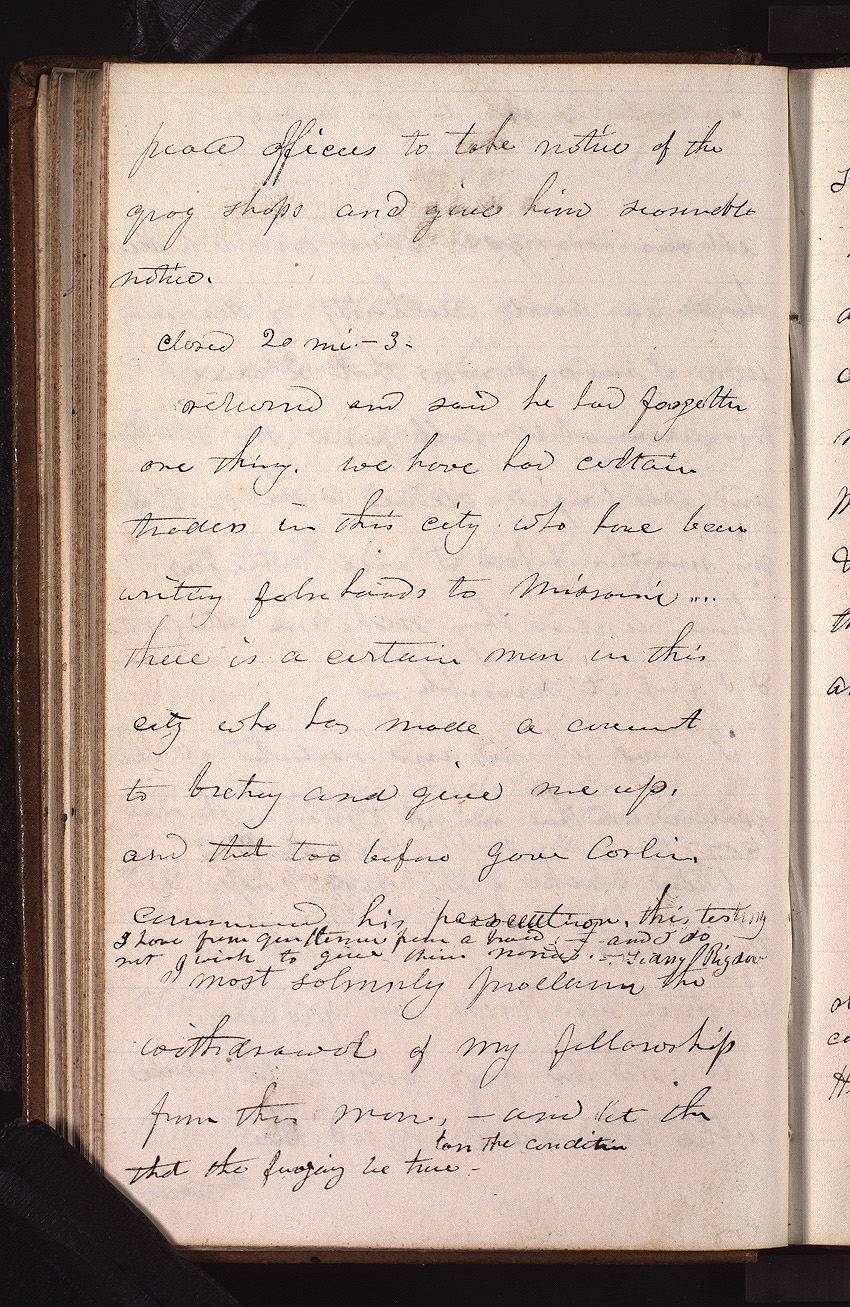 peace officers to take notice of the
grog shops and give him seasonable
notice.
closed 20 mi.- 3.
returned and said he had forgottn
one thing. we have had certain
traders in this city who have been
writing falsehoods to Missouri ...
there is a certain man in this
city who has made a covenant
to betray and give me up.
and that too before Gover Carlin
commenced his persecution. this testimy
I have from gentlemen from abroad. - and I do
not wish to give their names. - Sidny Rigdon
I most solmnly proclaim the
withdrawal of my fellowship
from this man, - and let the
on the condition
that the foregoing be true -